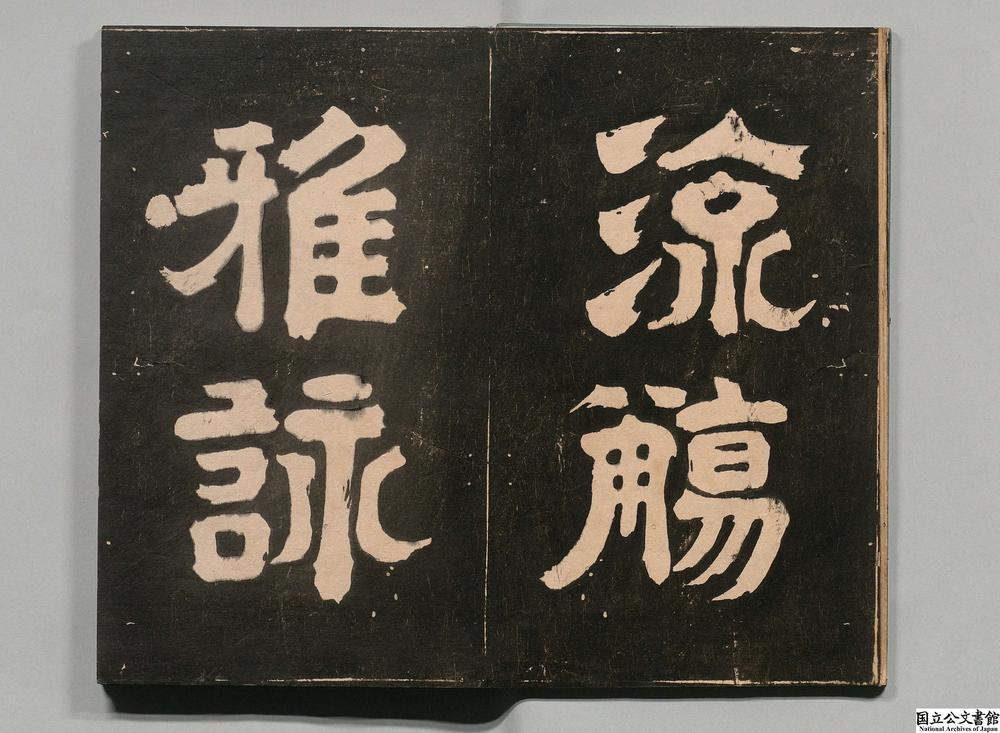 流觴
雅詠
国立公文書館
National Archives of Japan